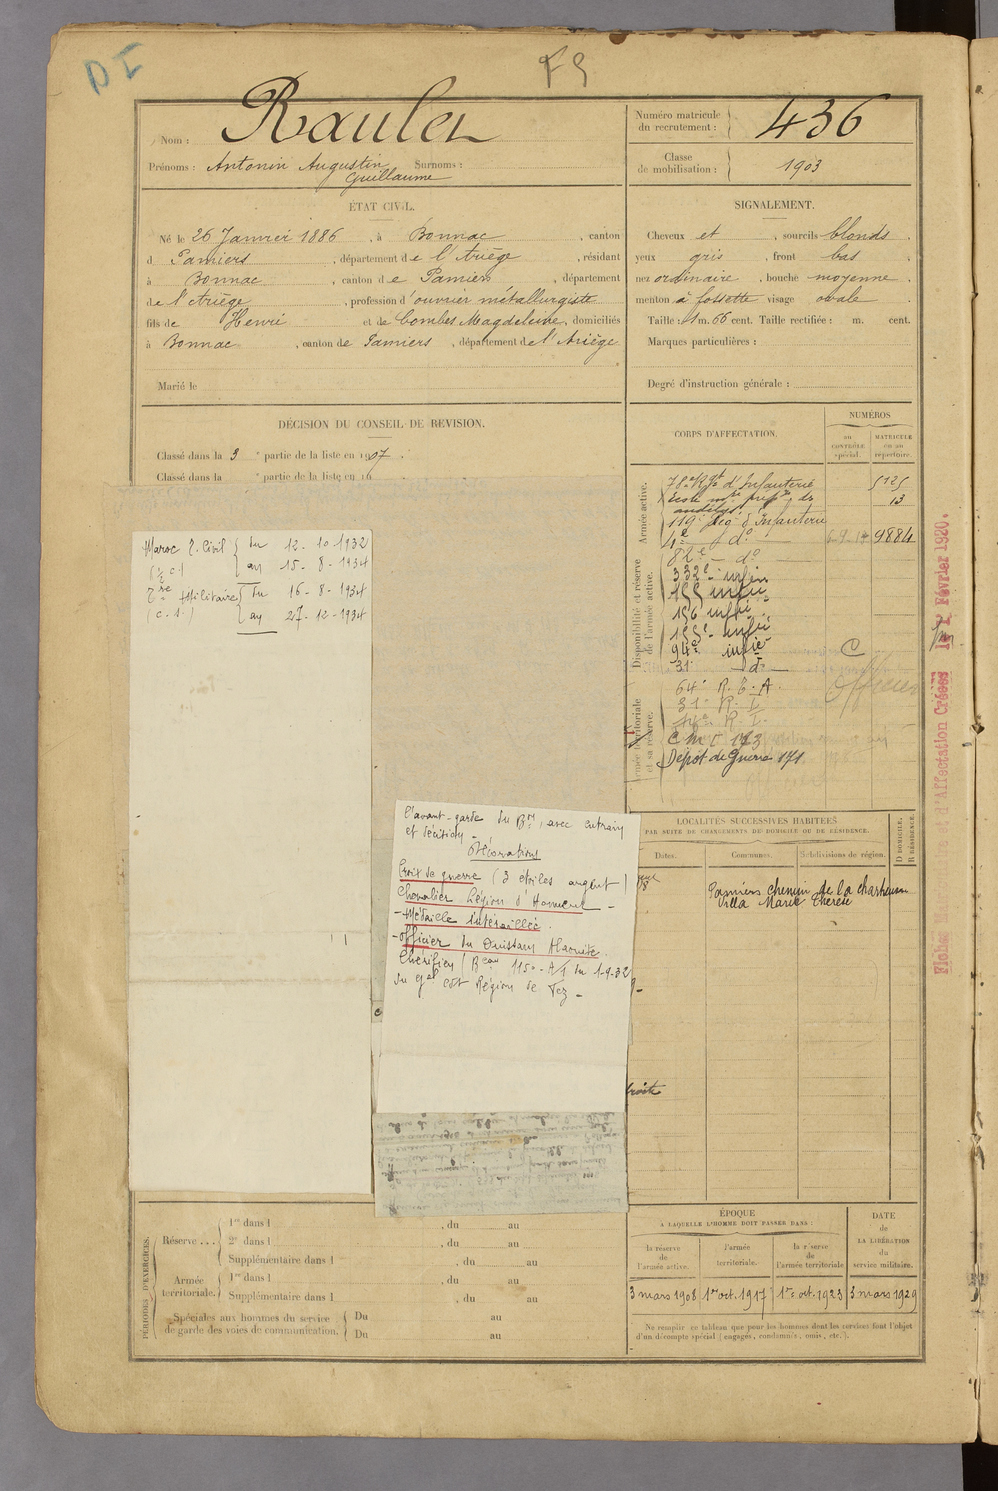 D I
F9
Nom : Raulet
Prénoms : Antonin Augustin Surnoms :
Guillaume
Numéro matricule du recrutement : 436
Classe de mobilisation : 1903
ÉTAT CIVIL.
Né le 26 Janvier 1886, à Bonnac, canton
d Pamiers, département de l'Ariège, résidant
à Bonnac, canton de Pamiers, département
de l'Ariège, profession d'ouvrier métallurgiste
fils de Henri et de Combes Magdeleine, domiciliés
à Bonnac, canton de Pamiers, département de l'Ariège
Marié le
SIGNALEMENT.
Cheveux et , sourcils blonds
yeux gris , front bas
nez ordinaire , bouche moyenne
menton à fossette visage ovale
Taille : 1 m. 66 cent. Taille rectifiée : m. cent.
Marques particulières :
Degré d'instruction générale :
DÉCISION DU CONSEIL DE REVISION.
Classé dans la 3e partie de la liste en 1907.
Classé dans la e partie de la liste en 19
CORPS D'AFFECTATION.
NUMÉROS
au CONTRÔLE spécial.
MATRICULE ou au répertoire.
Armée active.
78e Rgt d'Infanterie 5125
Ecole mre prépre de 13
119e Reg d'Infanterie
4e do 9884
82e do
Disponibilité et réserve de l'armée active.
332e infie
155 infie
156 infie
155e infie
94e infie C
31e do
Armée territoriale et sa réserve.
64e R.E.A. Officier
31e R.I.
14e R.I.
C M I 173
Dépôt de Guerre 171
Maroc T. Civil du 12-10-1932
au 15-8-1934
Militaire du 16-8-1934
au 27-12-1934
l'avant-garde du Bon, avec entrain
et décision
Décorations
Croix de guerre (3 étoiles argent)
Chevalier Légion d'Honneur -
- Médaille Interalliée.
- Officier du Ouissam Alaouite
Chérifien (Beau 1150-A/1 du 1-9-32
du Gal Cdt Région de Fez -
LOCALITÉS SUCCESSIVES HABITÉES
PAR SUITE DE CHANGEMENTS DE DOMICILE OU DE RÉSIDENCE.
Dates. Communes. Subdivisions de région. D DOMICILE. R RÉSIDENCE.
Pamiers chemin de la chartreuse
Villa Marie Thérèse
droite
PÉRIODES D'EXERCICES.
Réserve ... 1re dans l , du au
2e dans l , du au
Supplémentaire dans l , du au
Armée territoriale. 1re dans l , du au
Supplémentaire dans l , du au
Spéciales aux hommes du service de garde des voies de communication. Du au
Du au
ÉPOQUE
A LAQUELLE L'HOMME DOIT PASSER DANS :
la réserve de l'armée active.
l'armée territoriale.
la réserve de l'armée territoriale
DATE de LA LIBÉRATION du service militaire.
3 mars 1908 1er oct. 1917 1er oct. 1923 3 mars 1929
Ne remplir ce tableau que pour les hommes dont les services font l'objet
d'un décompte spécial (engagés, condamnés, omis, etc.).
et d'Affectation Créées le 1er Février 1920.